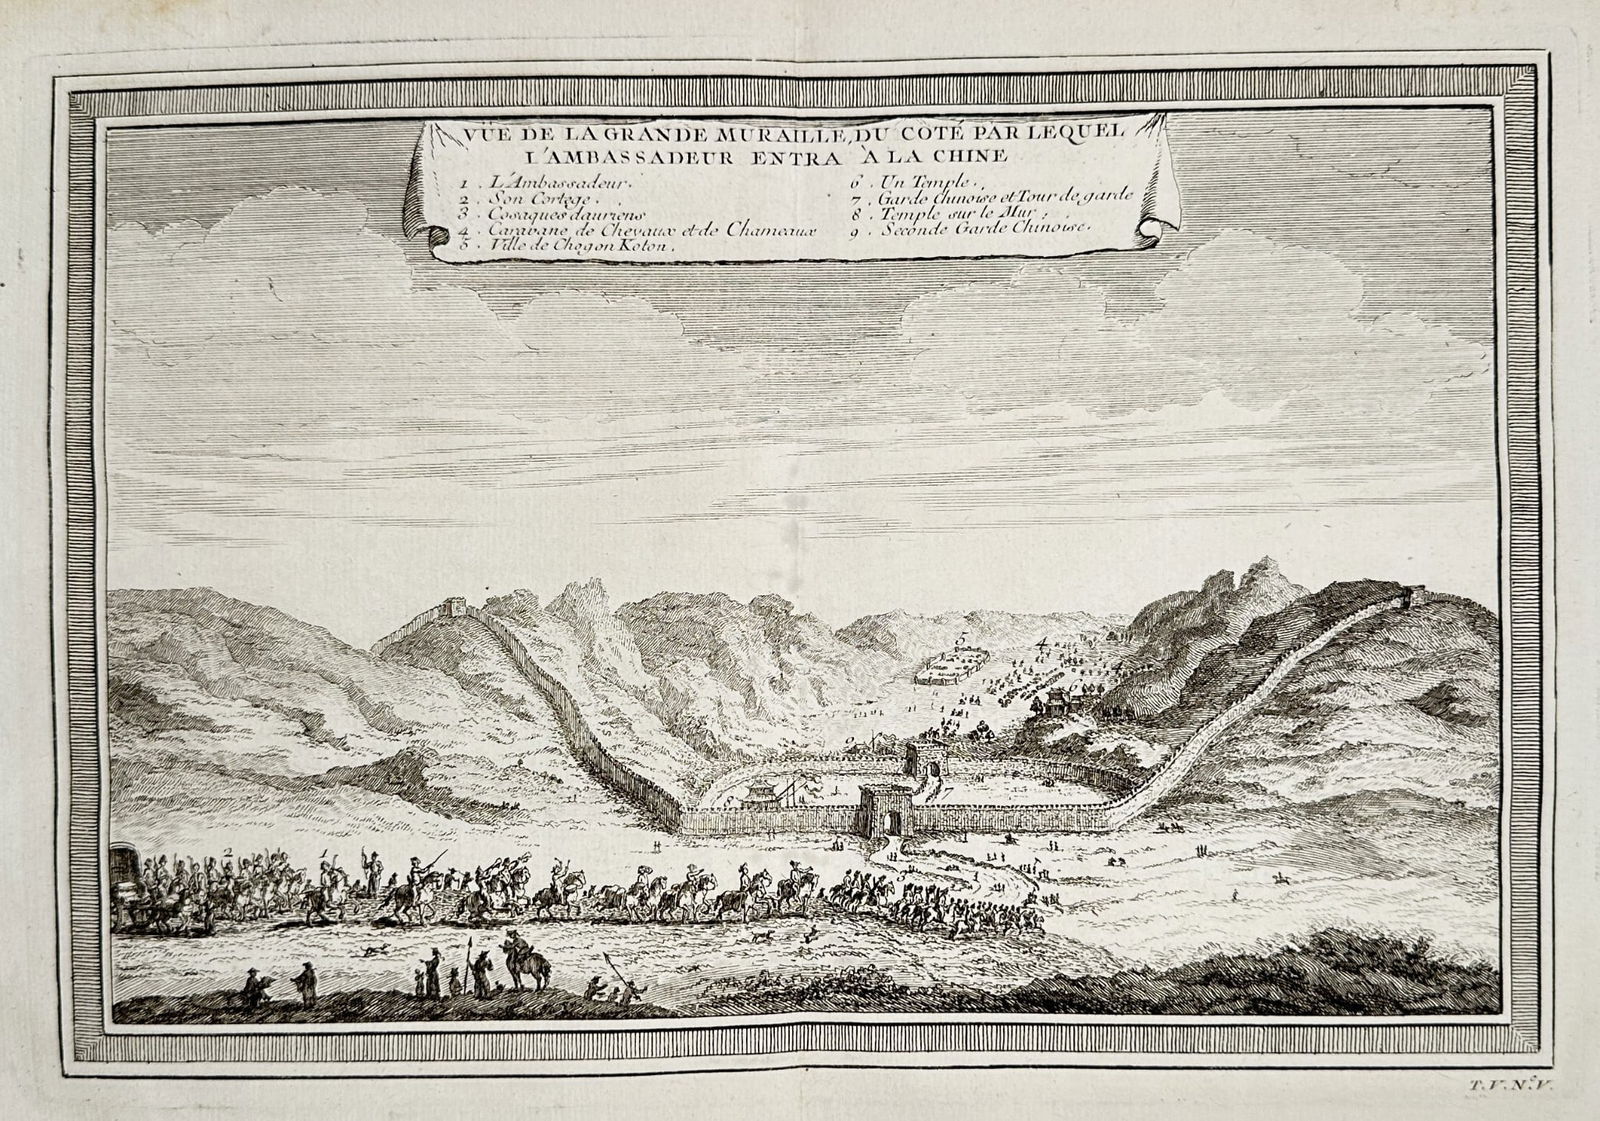 VÜE DE LA GRANDE MURAILLE, DU CÔTÉ PAR LEQUEL
L'AMBASSADEUR ENTRA À LA CHINE
1 . L'Ambassadeur.
2 . Son Cortège.
3 . Cosaques dauriens
4 . Caravane de Chevaux et de Chameaux
5 . Ville de Chogon Koton.
6 . Un Temple.
7 . Garde Chinoise et Tour de garde
8 . Temple sur le Mur.
9 . Seconde Garde Chinoise.
5
4
2
1
T.V.N.º V.